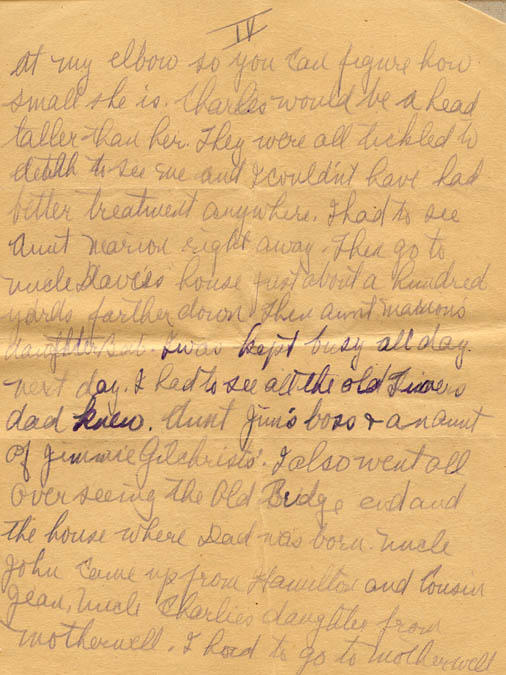 IV
at my elbow so you can figure how
small she is. Charles would be a head
taller than her. They were all tickled to
death to see me and I couldn't have had
better treatment anywhere. I had to see
Aunt Marion right away. Then go to
Uncle Davies' house just about a hundred
yards farther down. Then aunt Marion's
daughter I was kept busy all day.
next day. I had to see all the old Timers
dad knew. Aunt Jim's boss & an aunt
of Jimmie Gilchrists'. I also went all
over seeing the Old Bridge end and
the house where Dad was born. Uncle
John came up from Hamilton and Cousin
Jean, Uncle Charlies daughter from
Motherwell. I had to go to Motherwell